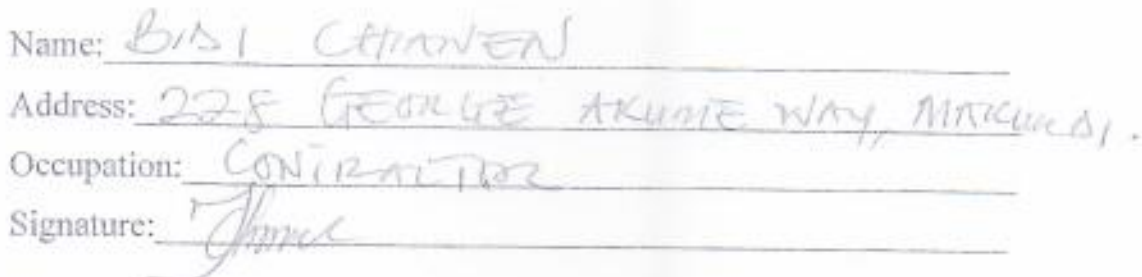 Name: BIDI CHIANEN
Address: 228 GEORGE AKUME WAY, MAKURDI.
Occupation: CONTRACTOR
Signature: